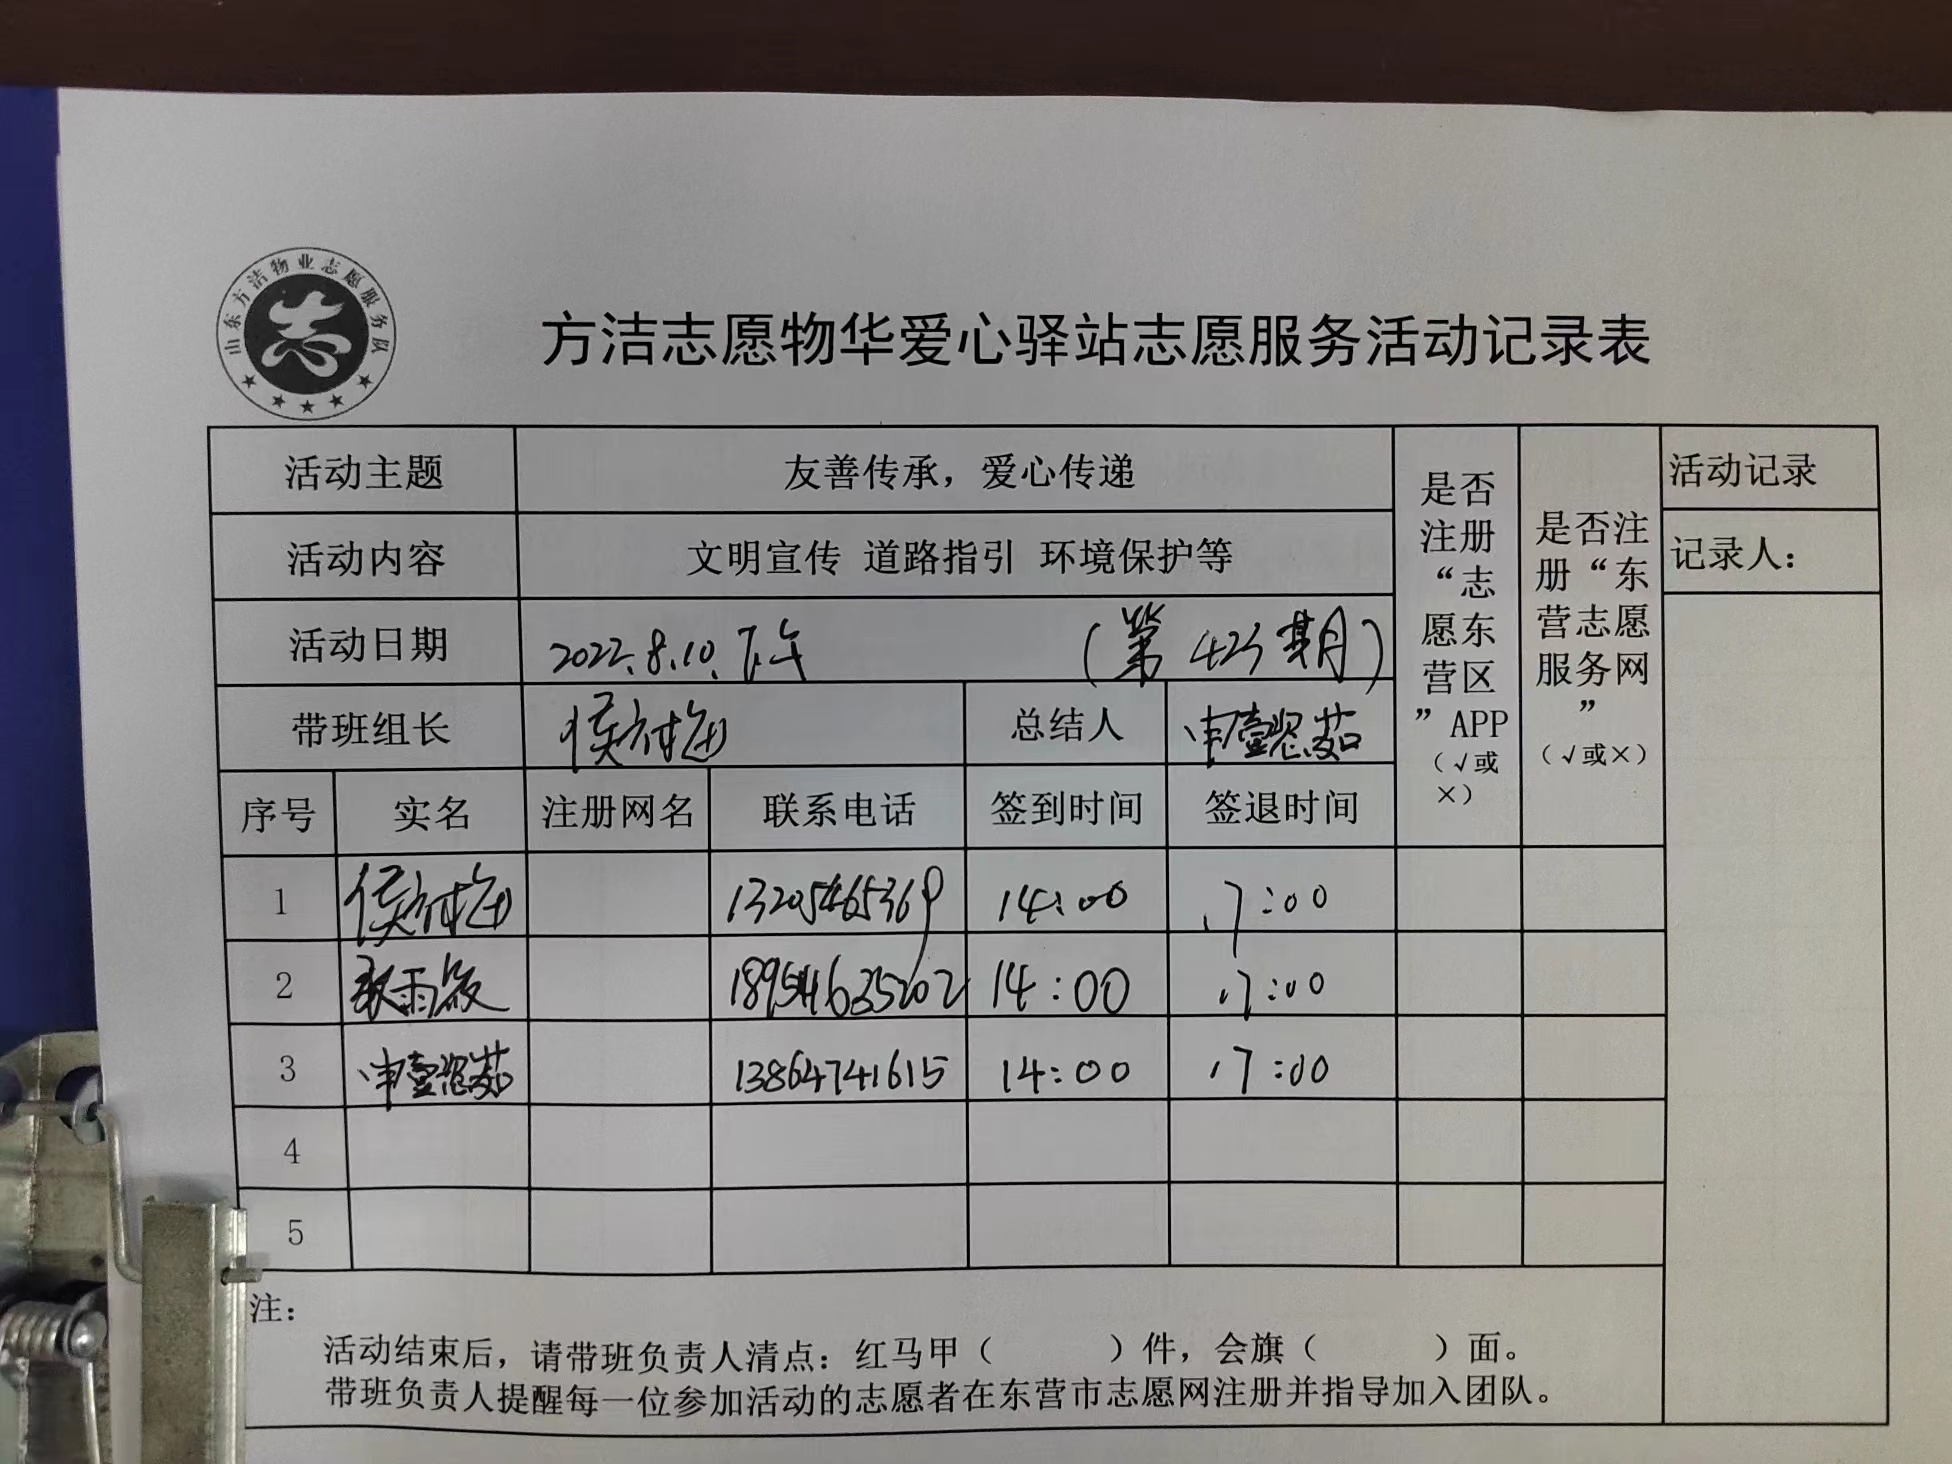 山东方洁物业志愿服务队
方洁志愿物华爱心驿站志愿服务活动记录表
活动主题 友善传承，爱心传递
活动内容 文明宣传 道路指引 环境保护等
活动日期 2022.8.10.下午 （第423期）
带班组长 总结人
是否注册“志愿东营区”APP（√或×）
是否注册“东营志愿服务网”（√或×）
活动记录
记录人：
序号 实名 注册网名 联系电话 签到时间 签退时间
1 13205465369 14:00 17:00
2 18954635202 14:00 17:00
3 13864741615 14:00 17:00
4
5
注：
活动结束后，请带班负责人清点：红马甲（ ）件，会旗（ ）面。
带班负责人提醒每一位参加活动的志愿者在东营市志愿网注册并指导加入团队。